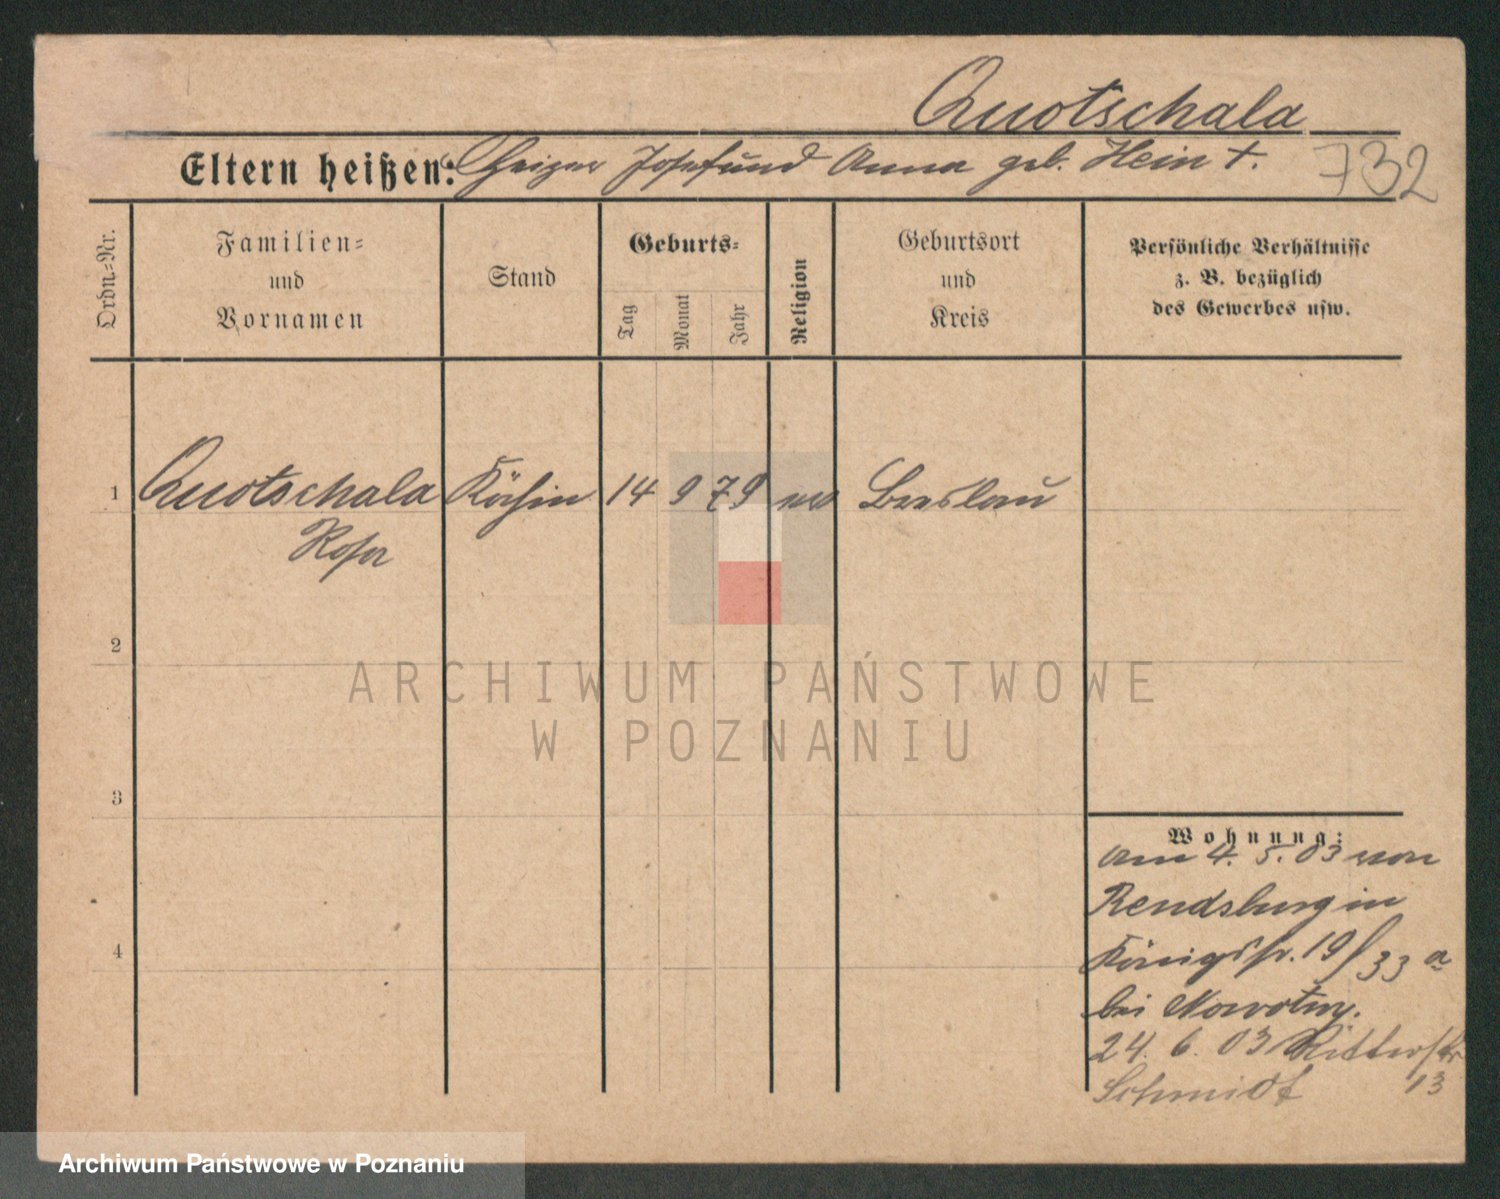 Quotschala
Eltern heißen: Heizer Josef und Anna geb. Hein †.
732
Ordn.=Nr.
Familien=
und
Vornamen
Stand
Geburts=
Tag
Monat
Jahr
Religion
Geburtsort
und
Kreis
Persönliche Verhältnisse
z. B. bezüglich
des Gewerbes usw.
1 Quotschala Köchin 14 9 79 Breslau
Rosa
2
3
4
Wohnung:
am 4. 5. 03 von
Rendsburg in
Königsstr. 19/33 a
bei Nowotny.
24. 6. 03 Ritterstr
Schmidt 13
ARCHIWUM PAŃSTWOWE
W POZNANIU
Archiwum Państwowe w Poznaniu